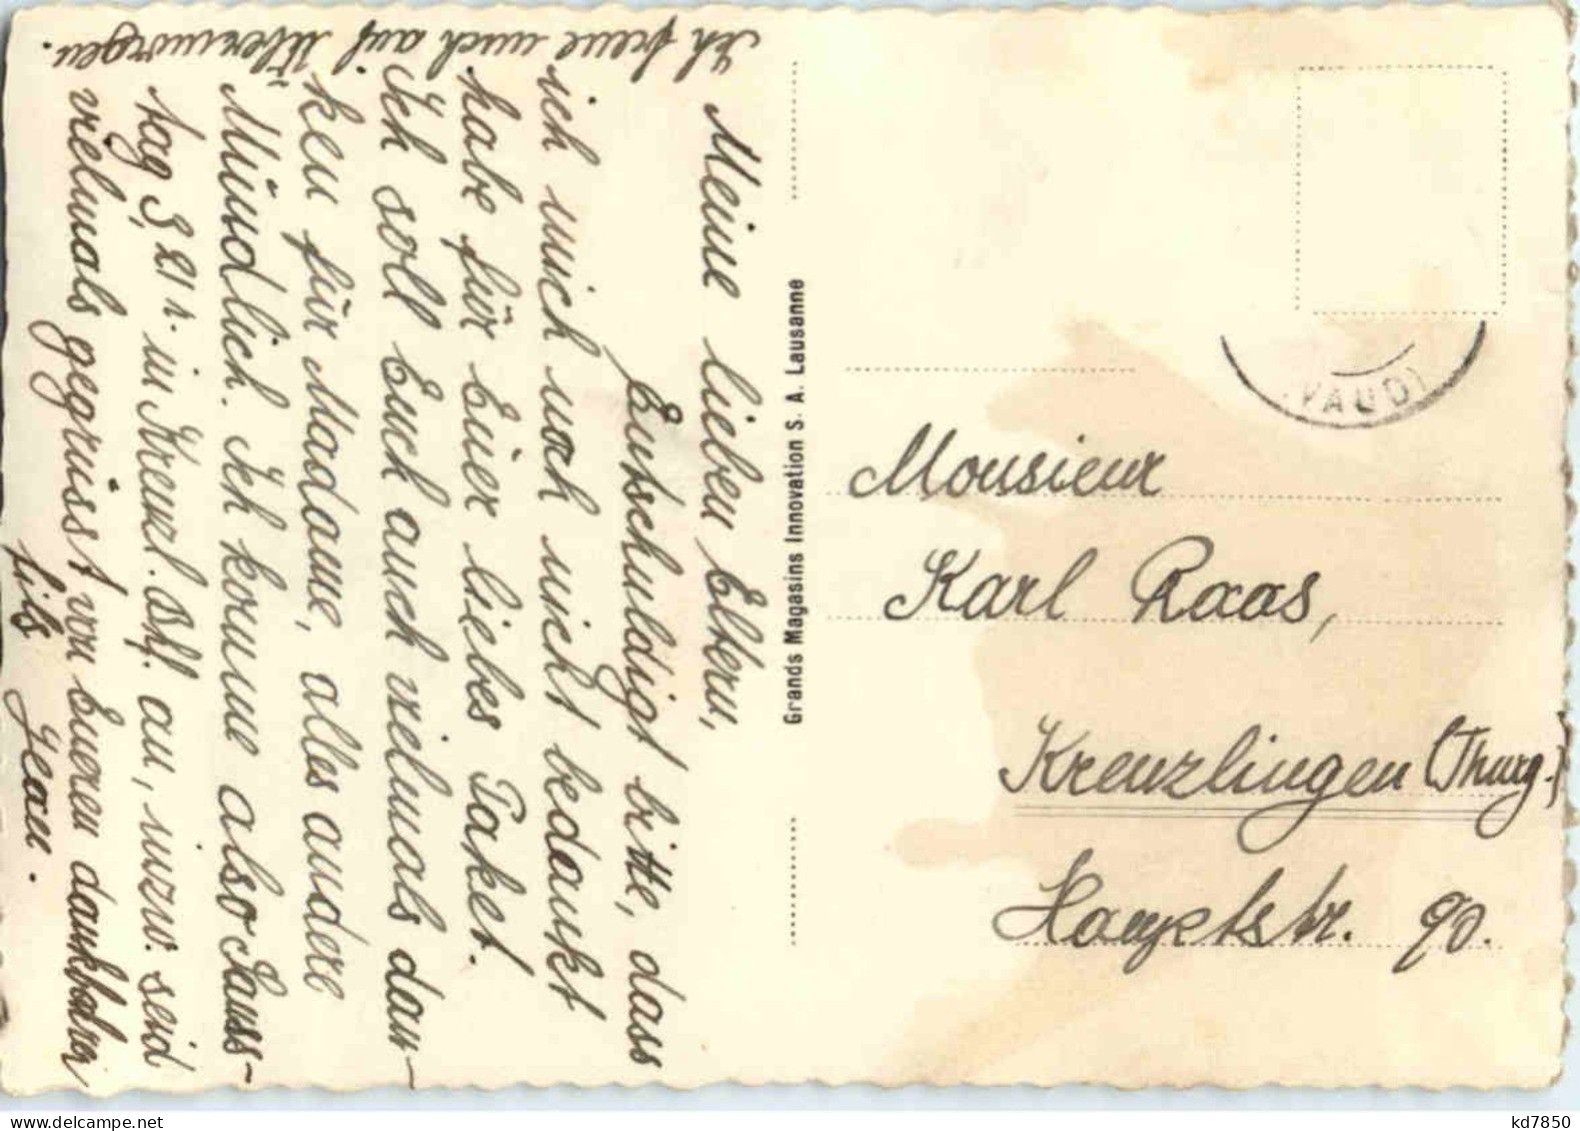 Meine lieben Eltern,
Entschuldigt bitte, dass
ich mich noch nicht bedankt
habe für Euer liebes Paket.
Ich soll Euch auch vielmals dan-
ken für Madame, alles andere
Mündlich. Ich komme also Sams-
tag 3, 21 h. in Kreuzl. Bhf. an, inzw. seid
vielmals gegrüsst von Eurem dankbaren
fils Jean.
Ich freue mich auf Übermorgen.
Grands Magasins Innovation S. A. Lausanne
(VAUD)
Monsieur
Karl Raas,
Kreuzlingen (Thurg.)
Hauptstr. 90.
kd7850